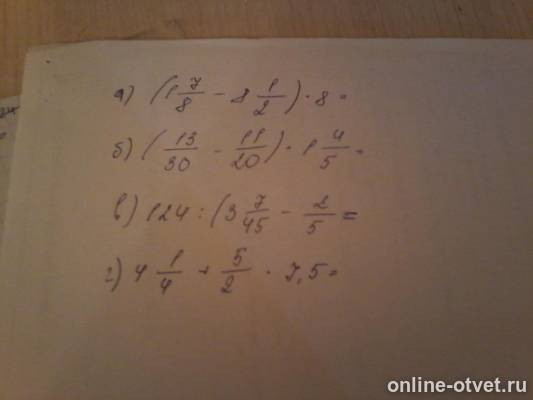 а) (1 7/8 - 8 1/2) · 8 =
б) (13/30 - 11/20) · 1 4/5 =
в) 124 : (3 7/45 - 2/5 =
г) 4 1/4 + 5/2 · 7,5 =
online-otvet.ru